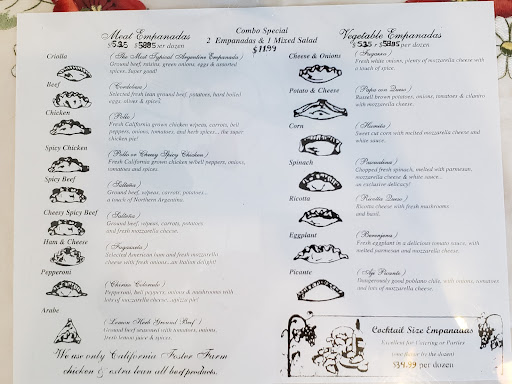 Meat Empanadas
$5.25 $58.95 per dozen
Combo Special
2 Empanadas & 1 Mixed Salad
$11.99
Vegetable Empanadas
$5.25 $58.95 per dozen
Criolla
( The Most Typical Argentine Empanada )
Ground beef, onions, green onions, eggs & assorted
spices. Super good!
Beef
( Cordobesa )
Selected fresh lean ground beef, potatoes, hard boiled
eggs, olives & spices.
Chicken
( Pollo )
Fresh California grown chicken w/peas, carrots, bell
peppers, onions, tomatoes, and herb spices... the super
chicken pie!
Spicy Chicken
( Pollo or Cheesy Spicy Chicken )
Fresh California grown chicken w/bell peppers, onions,
tomatoes and spices
Spicy Beef
( Salteña )
Ground beef, w/peas, carrots, potatoes...
a touch of Northern Argentina.
Cheesy Spicy Beef
( Salteña )
Ground beef, w/peas, carrots, potatoes
and fresh mozzarella cheese.
Ham & Cheese
( Fugazzata )
Selected American ham and fresh mozzarella
cheese with fresh onions...an Italian delight!
Pepperoni
( Chorizo Colorado )
Pepperoni, bell peppers, onions & mushrooms with
lots of mozzarella cheese,
Arabe
( Lemon Herb Ground Beef )
Ground beef seasoned with tomatoes, onions,
fresh lemon juice & spices.
We use only California Foster Farm
chicken & extra lean all beef products.
Cheese & Onions
( Fugazza )
Fresh white onions, plenty of mozzarella cheese with
a touch of spice.
Potato & Cheese
( Papa con Queso )
Russell brown potatoes, onions, tomatoes & cilantro
with mozzarella cheese.
Corn
( Humita )
Sweet cut corn with melted mozzarella cheese and
white sauce.
Spinach
( Pascualina )
Chopped fresh spinach, melted with parmesan,
mozzarella cheese & white sauce...
an exclusive delicacy!
Ricotta
( Ricotta Queso )
Ricotta cheese with fresh mushrooms
and basil.
Eggplant
( Berenjena )
Fresh eggplant in a delicious tomato sauce, with
melted parmesan and mozzarella cheese.
Picante
( Aji Picante )
Dangerously good poblano chile, with onions, tomatoes
and lots of mozzarella cheese.
Cocktail Size Empanadas
Excellent for Catering or Parties
(one flavor to the dozen)
$34.99 per dozen